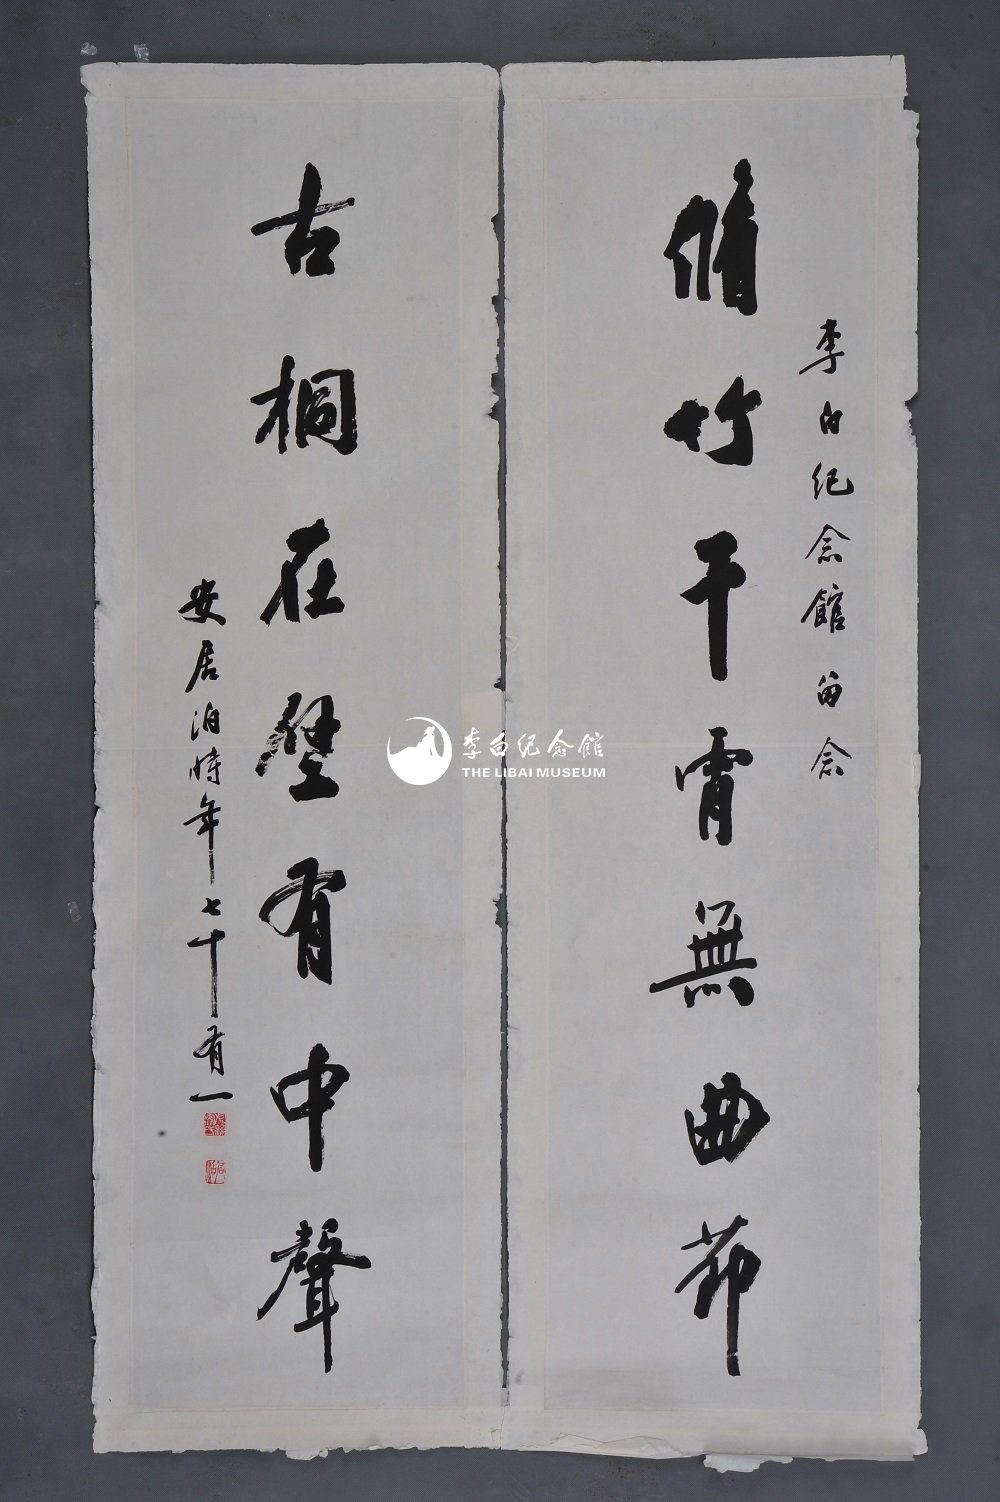 李白纪念館留念
脩竹干霄無曲節
古桐在壁有中聲
安居泊時年七十有一
李白纪念館
THE LIBAI MUSEUM